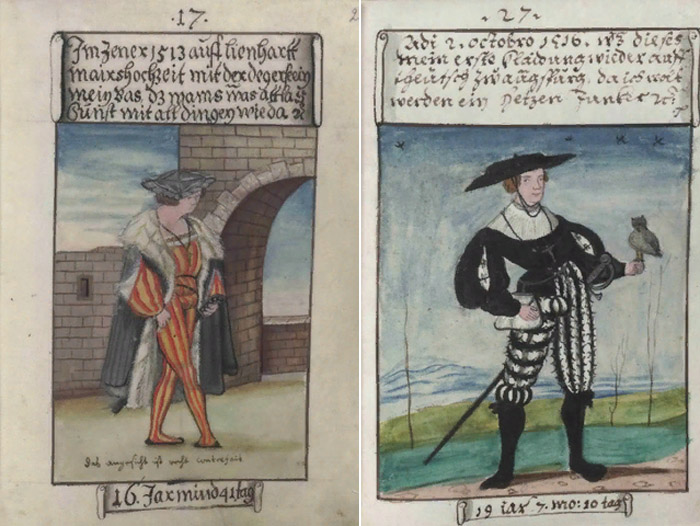 ·17·
2
Im Jener 1513 auff lienhartt
mairs hochzeit mit der
mein bas, dz wams was attlas
sunst mit all dingen wie da
das angesicht ist recht
16. Jar und 41 tag
·27·
Adi 2. octobro 1516. wz dieses
mein erste klaidung wider auff
teutsch zw augspurg, da ich wolt
werden ein Junker
19 iar 7. mo: 10 tag